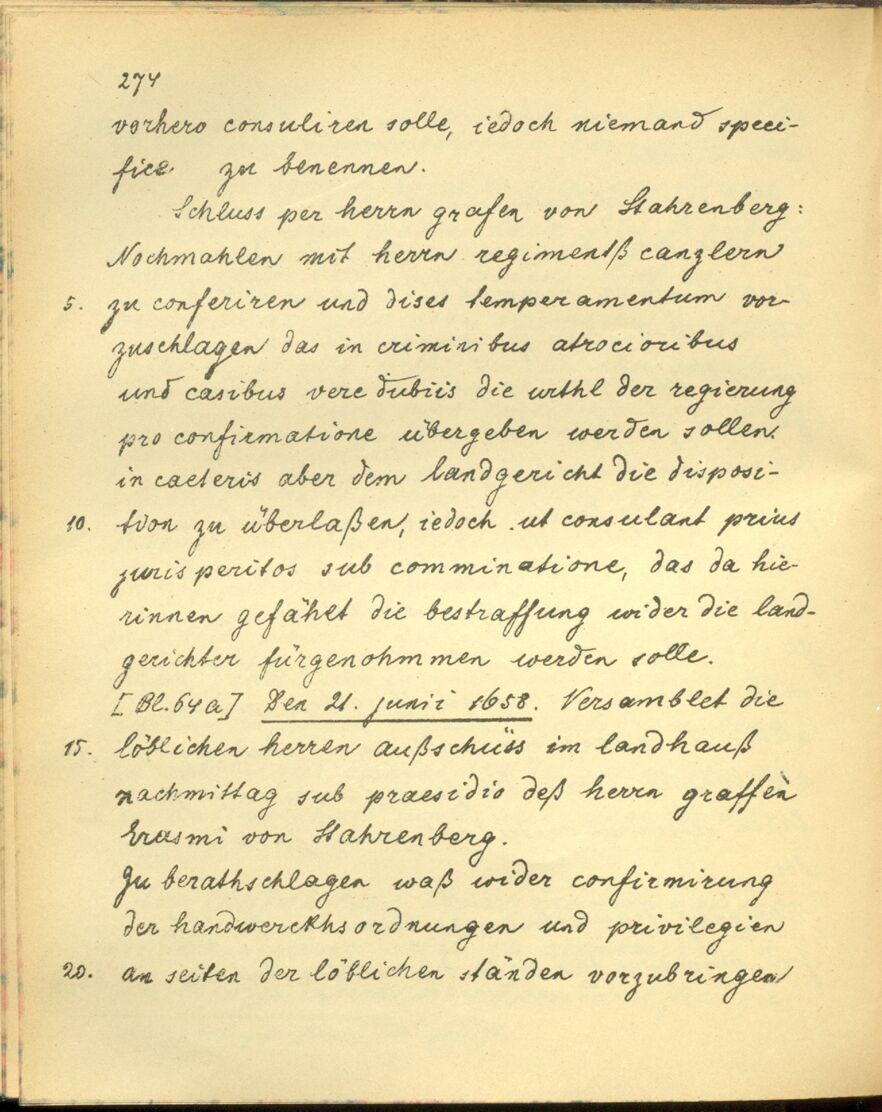 274
vorhero consuliren solle, iedoch niemand speci-
fice zu benennen.
Schluss per herrn grafen von Stahrenberg:
Nochmahlen mit herrn regimentß canzlern
5. zu conferiren und dises temperamentum vor-
zuschlagen das in criminibus atrocioribus
und casibus vere dubiis die urthl der regierung
pro confirmatione übergeben werden sollen.
in caeteris aber dem landgericht die disposi-
10. tion zu überlaßen, iedoch ut consulant prius
jurisperitos sub comminatione, das da hie-
rinnen gefählt die bestraffung wider die land-
gerichter fürgenohmmen werden solle.
[Bl. 64a] Den 21. junii 1658. Versamblet die
15. löblichen herren außschüss im landhauß
nachmittag sub praesidio deß herrn graffen
Erasmi von Stahrenberg.
Zu berathschlagen waß wider confirmirung
der handwerckhsordnungen und privilegien
20. an seiten der löblichen ständen vorzubringen